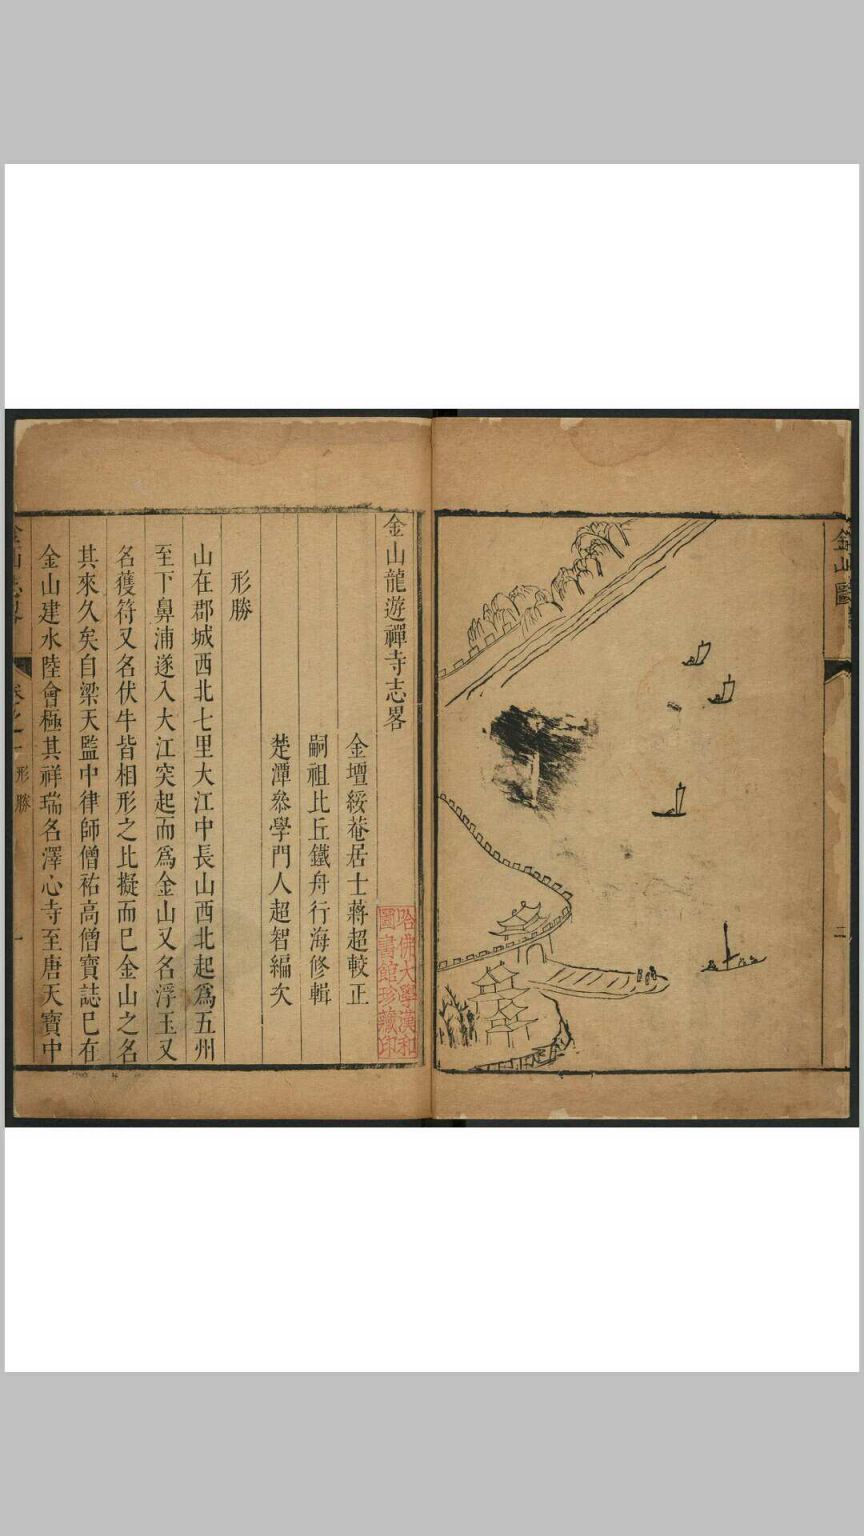 金山圖
二
金山龍遊禪寺志畧
金壇綏菴居士蔣超較正
嗣祖比丘鐵舟行海修輯
楚潭叅學門人超智編次
形勝
山在郡城西北七里大江中長山西北起爲五州
至下鼻浦遂入大江突起而爲金山又名浮玉又
名獲符又名伏牛皆相形之比擬而巳金山之名
其來久矣自梁天監中律師僧祐高僧寶誌巳在
金山建水陸會極其祥瑞名澤心寺至唐天寶中
金山志畧
卷之一
形勝
一
哈佛大學漢和
圖書館珍藏印